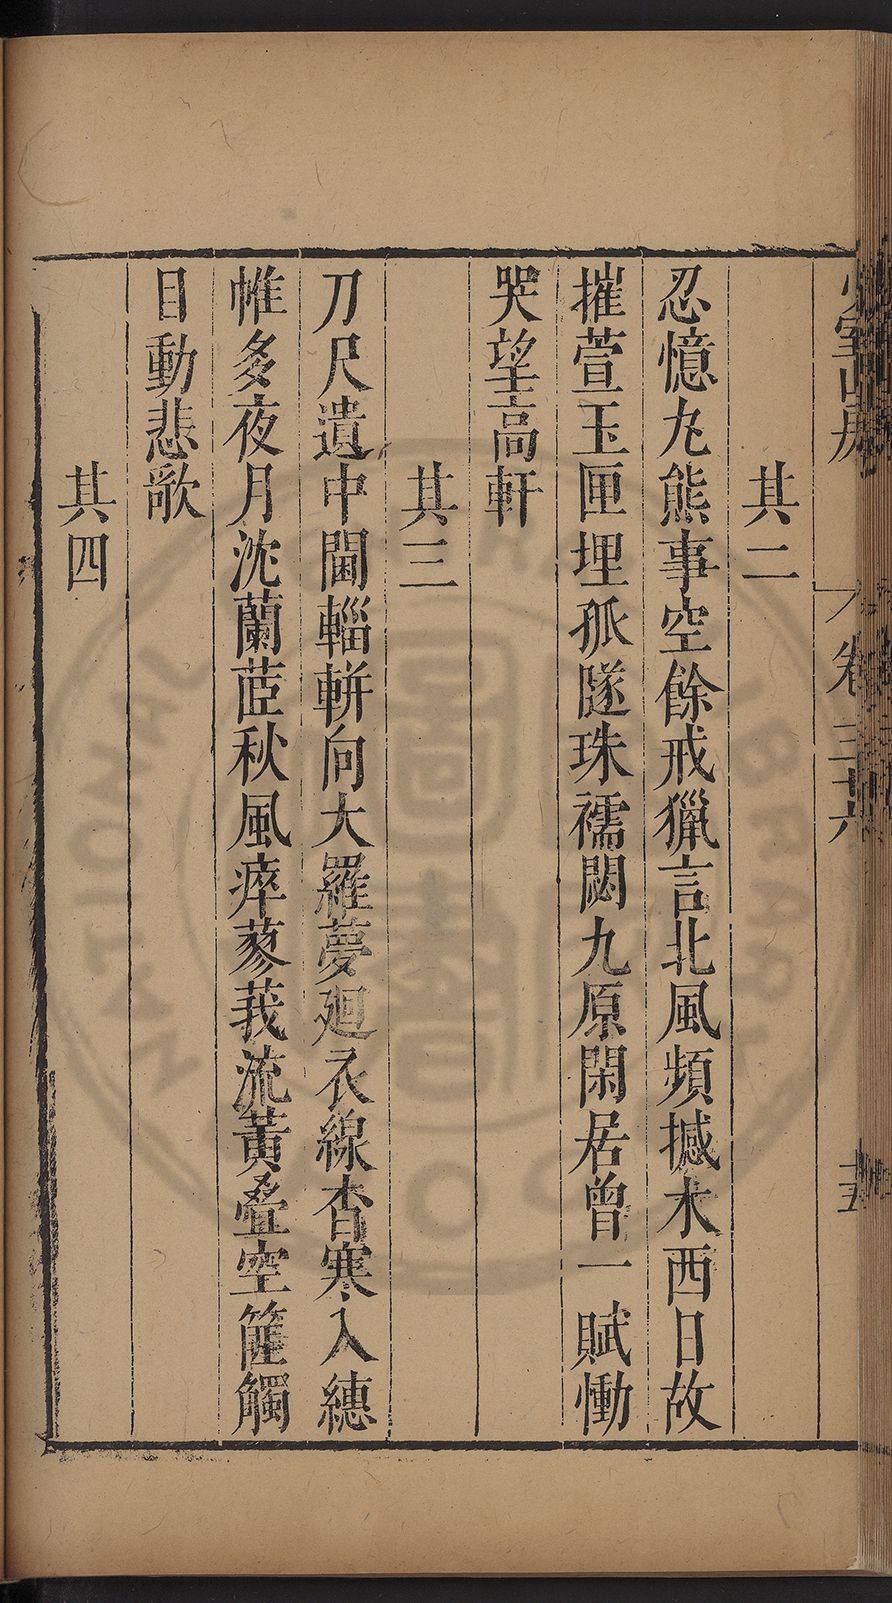 少室山房
卷三六
十五
其二
忍憶九熊事空餘戒獵言北風頻撼木西日故
摧萱玉匣埋孤隧珠襦閟九原閑居曾一賦慟
哭望高軒
其三
刀尺遺中閫輜軿向大羅夢廻衣線杳寒入繐
帷多夜月沈蘭茝秋風瘁蓼莪流黃叠空篋觸
目動悲歌
其四